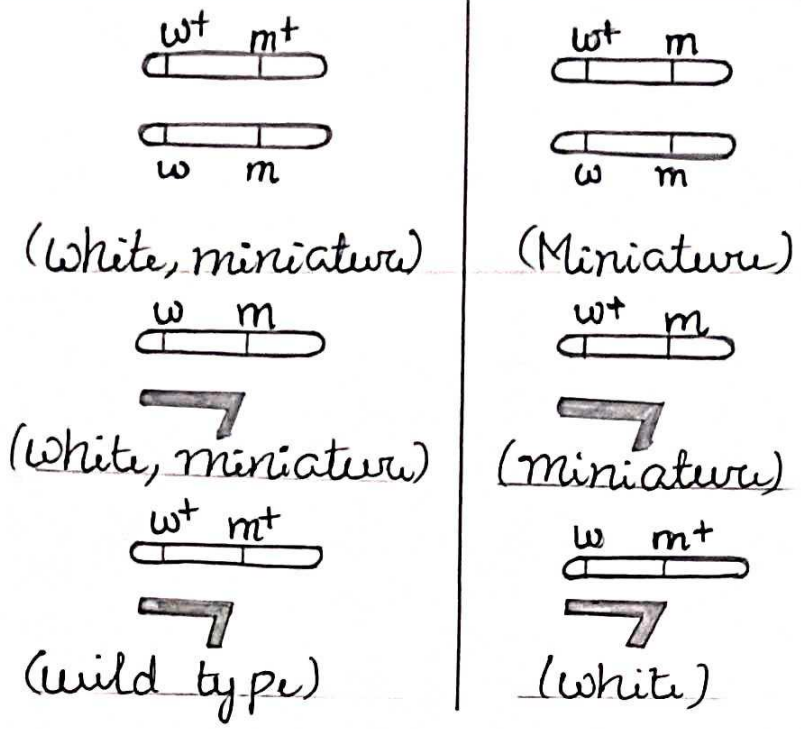 w+ m+
w m
(White, miniature)
w m
(White, miniature)
w+ m+
(wild type)
w+ m
w m
(Miniature)
w+ m
(miniature)
w m+
(white)